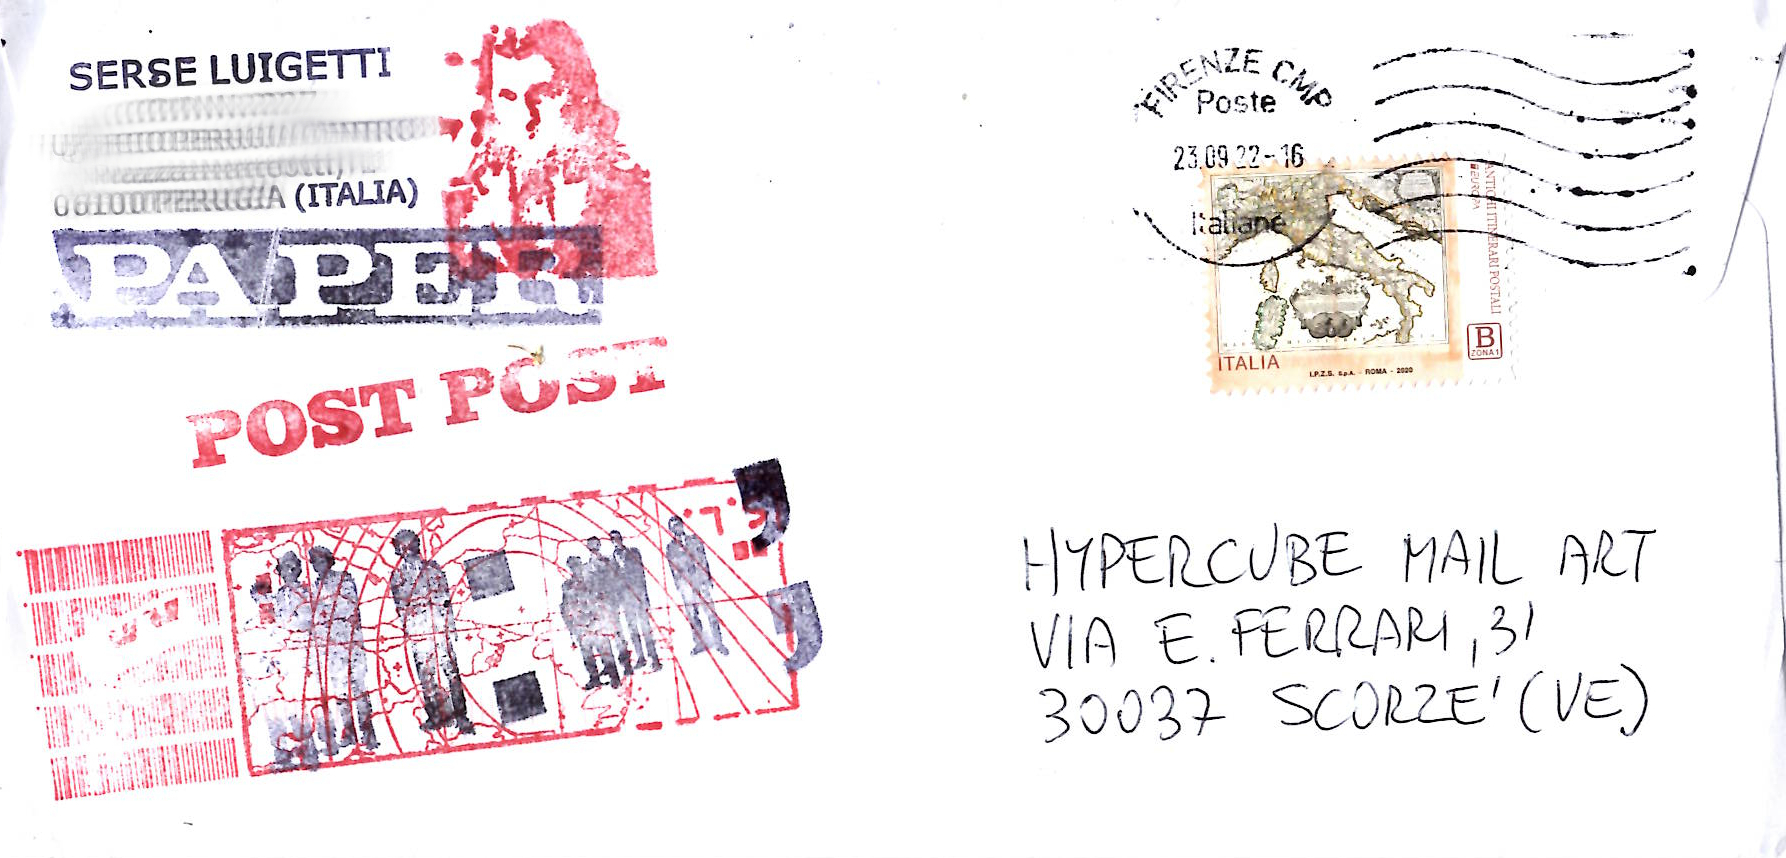 SERSE LUIGETTI
06100 PERUGIA (ITALIA)
PAPER
POST POST
FIRENZE CMP
Poste
23.09.22-16
Italiane
ANTICHI ITINERARI POSTALI
EUROPA
B
ZONA 1
ITALIA
I.P.Z.S. S.p.A. - ROMA - 2020
HYPERCUBE MAIL ART
VIA E. FERRARI, 31
30037 SCORZE' (VE)